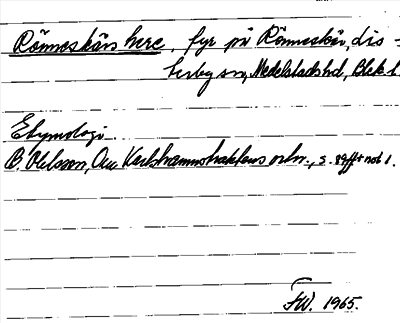 Rönneskärs here, fyr på Rönneskär, Lis-
terby sn, Medelstads hd, Blek l.
Etymologi
B. Ohlsson, Om Karlshamnstraktens ortn., s. 89 ff + not 1.
FW. 1965.